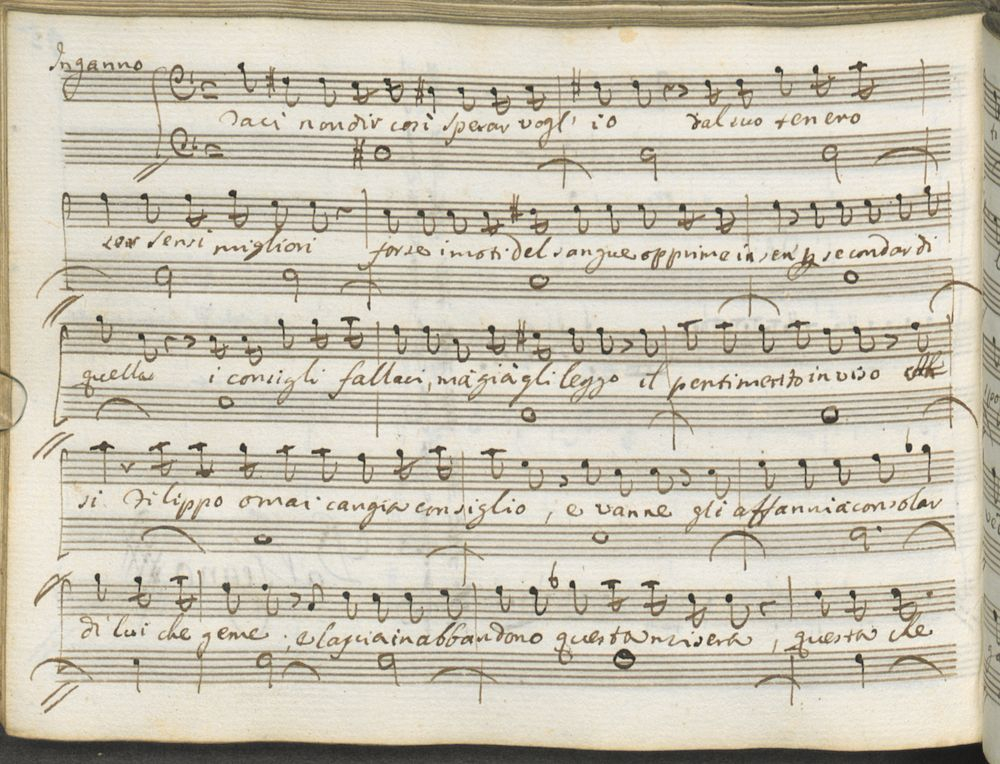 Inganno
Taci non dir così sperar vogl' io dal suo tenero
cor sensi migliori forse i moti del sangue opprime in sen p secondar di
quella i consigli fallaci, ma già gli leggo il pentimento in viso
si Filippo omai cangia consiglio, e vanne gli affanni a consolar
di lui che geme, e lascia in abbandono questa misera, questa che